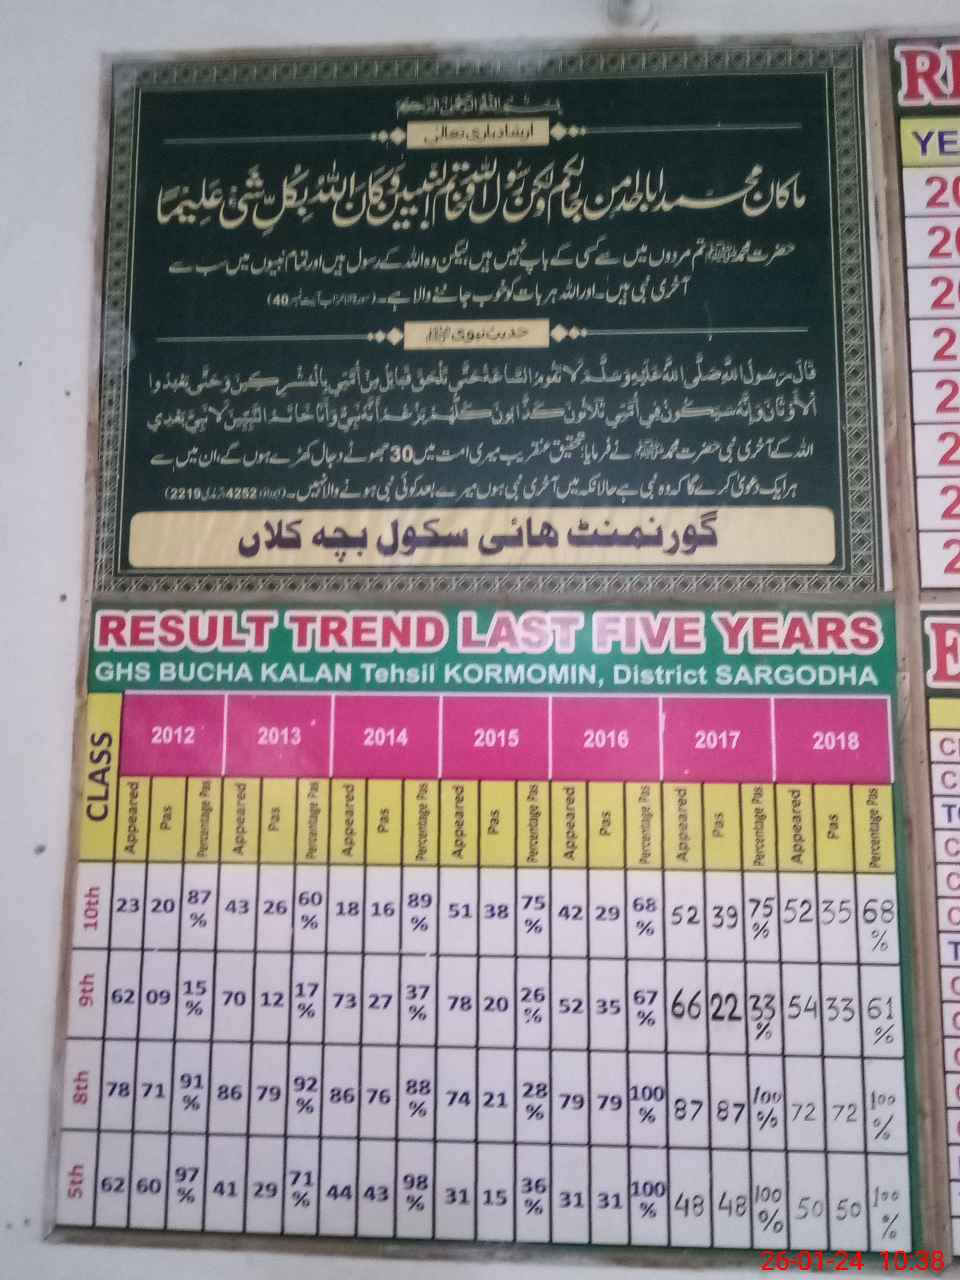 بِسْمِ اللهِ الرَّحْمٰنِ الرَّحِيْمِ
ارشاد باری تعالیٰ
مَا كَانَ مُحَمَّدٌ اَبَا اَحَدٍ مِّنْ رِّجَالِكُمْ وَلٰكِنْ رَّسُوْلَ اللهِ وَخَاتَمَ النَّبِيّٖنَ وَكَانَ اللهُ بِكُلِّ شَيْءٍ عَلِيْمًا
حضرت محمد ﷺ تم مردوں میں سے کسی کے باپ نہیں ہیں لیکن وہ اللہ کے رسول ہیں اور تمام نبیوں میں سب سے
آخری نبی ہیں۔ اور اللہ ہر بات کو خوب جاننے والا ہے۔ (سورۃ الاحزاب آیت نمبر 40)
حدیث نبوی ﷺ
قَالَ رَسُولُ اللهِ صَلَّى اللهُ عَلَيْهِ وَسَلَّمَ لَا تَقُومُ السَّاعَةُ حَتَّى تَلْحَقَ قَبَائِلُ مِنْ أُمَّتِي بِالْمُشْرِكِينَ وَحَتَّى يَعْبُدُوا
الْأَوْثَانَ وَإِنَّهُ سَيَكُونُ فِي أُمَّتِي ثَلَاثُونَ كَذَّابُونَ كُلُّهُمْ يَزْعُمُ أَنَّهُ نَبِيٌّ وَأَنَا خَاتَمُ النَّبِيِّينَ لَا نَبِيَّ بَعْدِي
اللہ کے آخری نبی حضرت محمد ﷺ نے فرمایا: تحقیق عنقریب میری امت میں 30 جھوٹے دجال کھڑے ہوں گے، ان میں سے
ہر ایک دعویٰ کرے گا کہ وہ نبی ہے حالانکہ میں آخری نبی ہوں میرے بعد کوئی نبی ہونے والا نہیں۔ (4252 2219)
گورنمنٹ ھائی سکول بچہ کلاں
RESULT TREND LAST FIVE YEARS
GHS BUCHA KALAN Tehsil KORMOMIN, District SARGODHA
CLASS 2012 2013 2014 2015 2016 2017 2018
Appeared Pas Percentage Pas Appeared Pas Percentage Pas Appeared Pas Percentage Pas Appeared Pas Percentage Pas Appeared Pas Percentage Pas Appeared Pas Percentage Pas Appeared Pas Percentage Pas
10th 23 20 87% 43 26 60% 18 16 89% 51 38 75% 42 29 68% 52 39 75% 52 35 68%
9th 62 09 15% 70 12 17% 73 27 37% 78 20 26% 52 35 67% 66 22 33% 54 33 61%
8th 78 71 91% 86 79 92% 86 76 88% 74 21 28% 79 79 100% 87 87 100% 72 72 100%
5th 62 60 97% 41 29 71% 44 43 98% 31 15 36% 31 31 100% 48 48 100% 50 50 100%
26-01-24 10:38